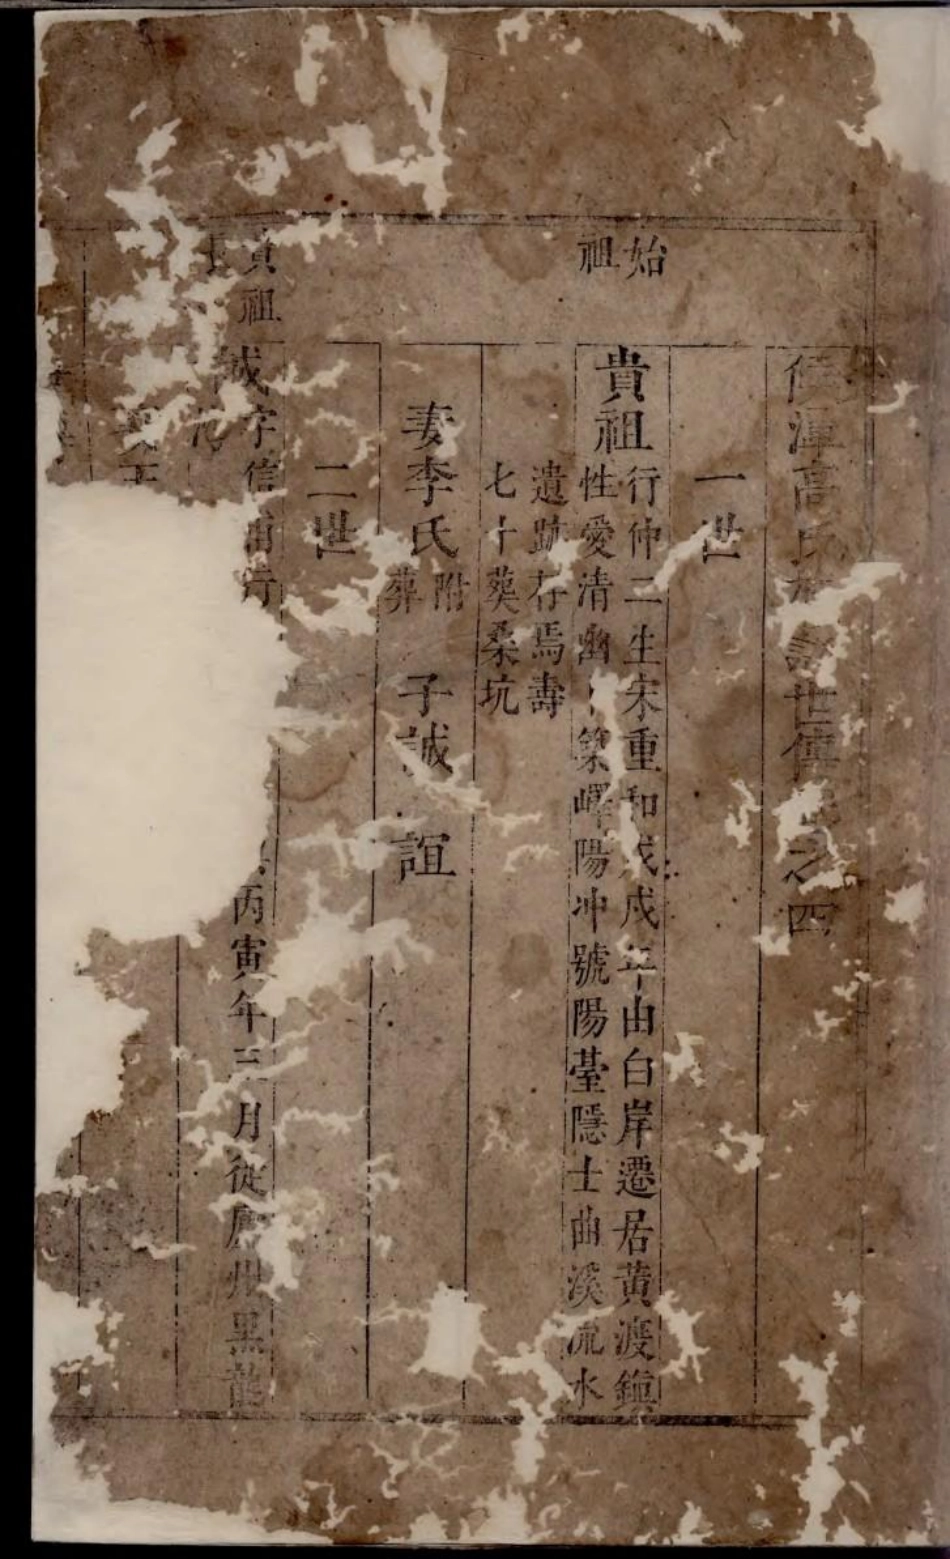 潭高氏世傳之四
一世
始祖
貴祖
行仲二生宋重和戊戌年由白岸遷居黃渡鎮
性愛清幽築嶧陽冲號陽臺隱士曲溪流水
遺跡存焉壽
七十葬桑坑
妻李氏附葬 子誠 誼
二世
貴祖長
誠字信甫行
丙寅年三月從州黑龍